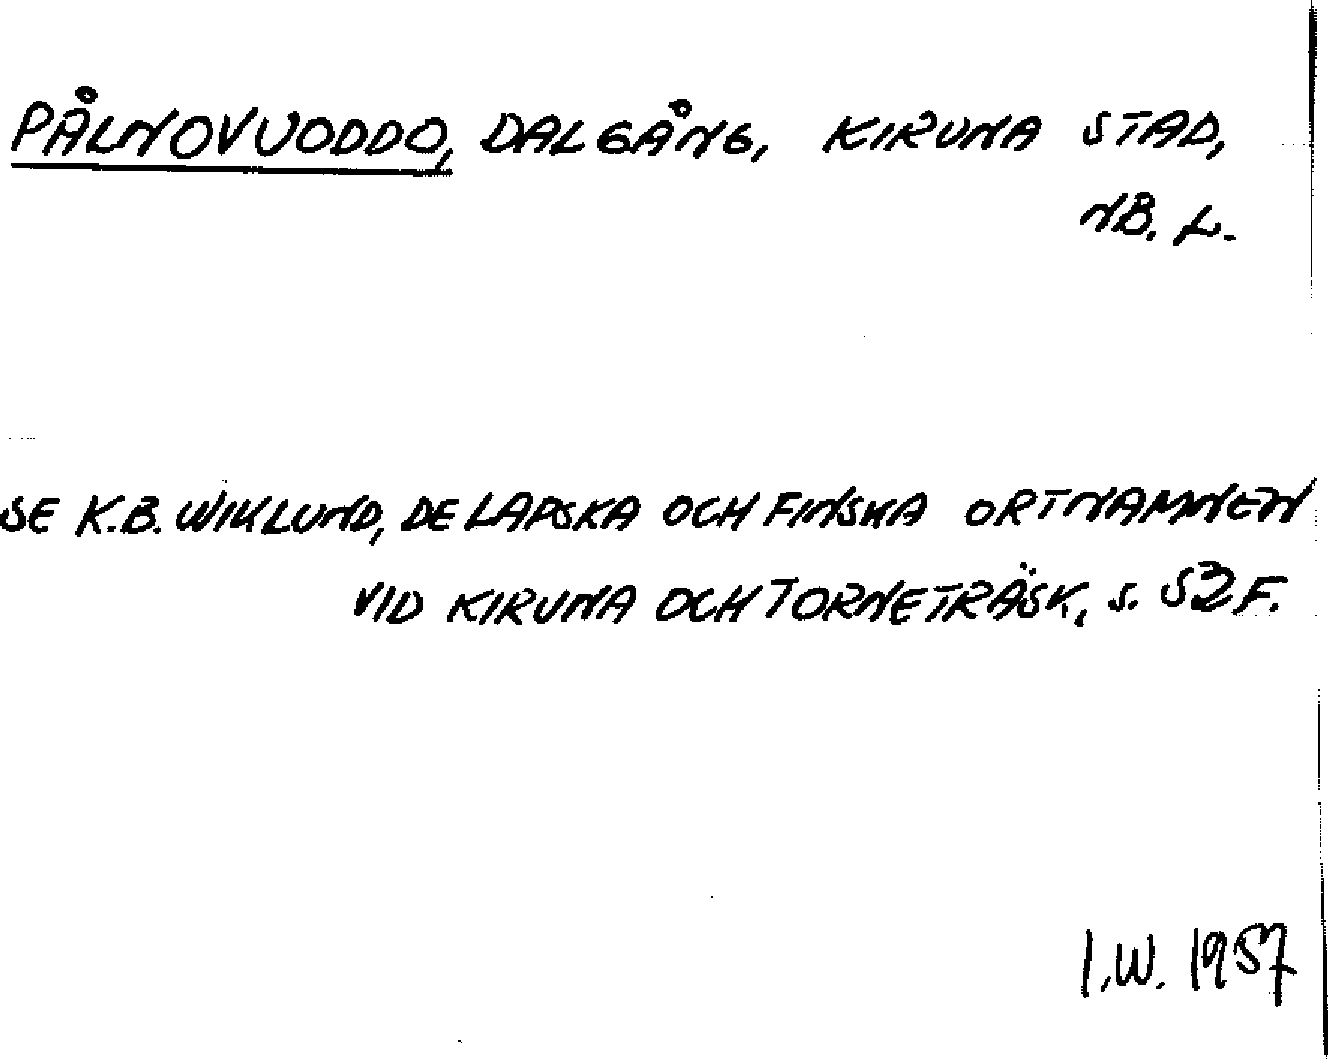 PÅLNOVUODDO, DALGÅNG, KIRUNA STAD,
NB. L.
SE K.B. WIKLUND, DE LAPSKA OCH FINSKA ORTNAMNEN
VID KIRUNA OCH TORNETRÄSK, S. 52 F.
I.W. 1957